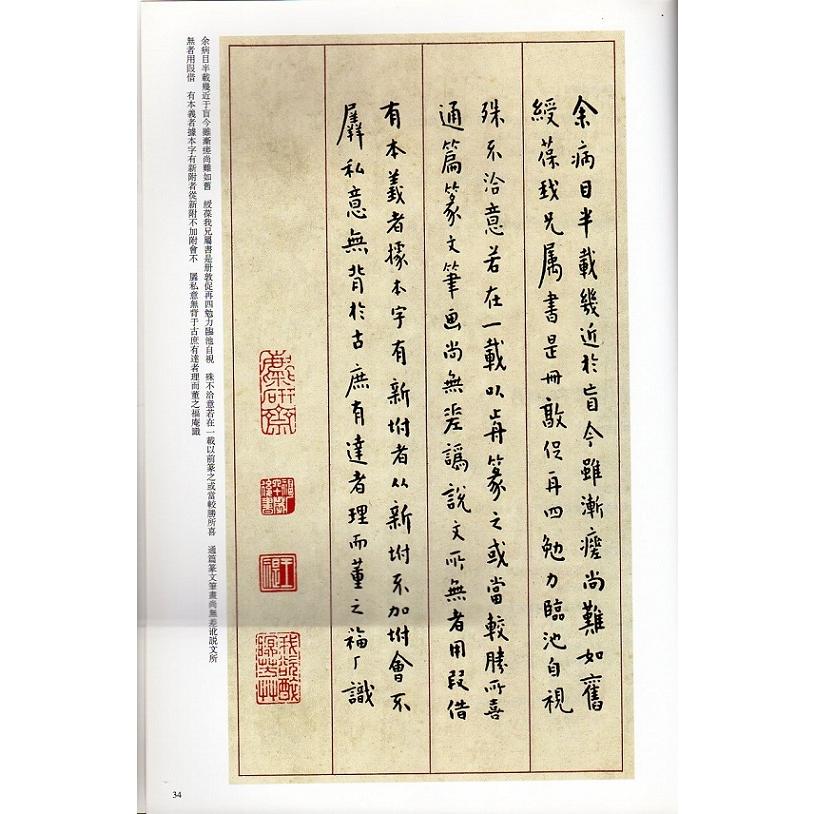 余病目半載幾近於盲今雖漸瘥尚難如舊
綬葆我兄属書是冊敦促再四勉力臨池自視
殊不洽意若在一載以歬篆之或當較勝所喜
通篇篆文筆画尚無差譌說文所無者用叚借
有本義者據本字有新坿者从新坿不加坿會不
羼私意無背於古庶有達者理而董之福厂識
麋研齋
王禔
余病目半載幾近于盲今雖漸瘥尚難如舊　綬葆我兄屬書是冊敦促再四勉力臨池自視　殊不洽意若在一載以前篆之或當較勝所喜　通篇篆文筆畫尚無差訛說文所
無者用叚借　有本義者據本字有新附者從新附不加附會不　羼私意無背于古庶有達者理而董之福庵識
34